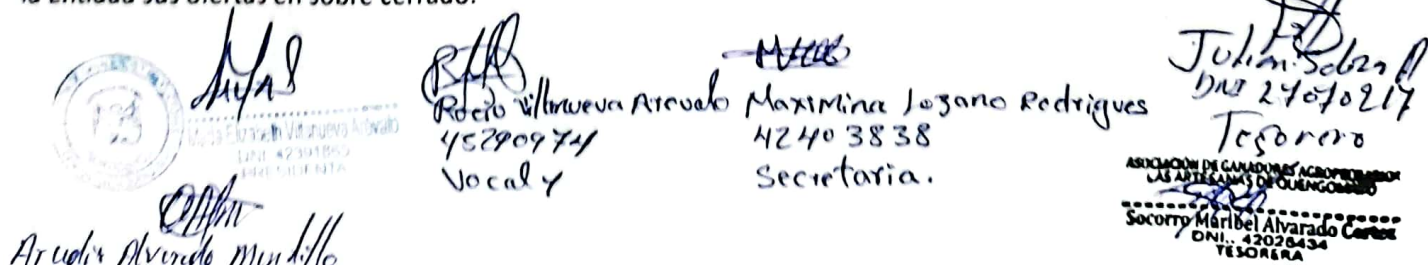 la entidad sus ofertas en sobre cerrado.
María Elizabeth Villanueva Arévalo
DNI: 42391865
PRESIDENTA
Rocio Villanueva Arevalo
45290974
Vocal y
Maximina Lozano Rodrigues
42403838
Secretaria.
Julian
DNI 27070217
Tesorero
ASOCIACIÓN DE GANADORES AGROPECUARIOS
LAS ARTESANAS DE QUENGOMAYO
Socorro Maribel Alvarado Cortez
DNI.. 42026434
TESORERA
Alvarado